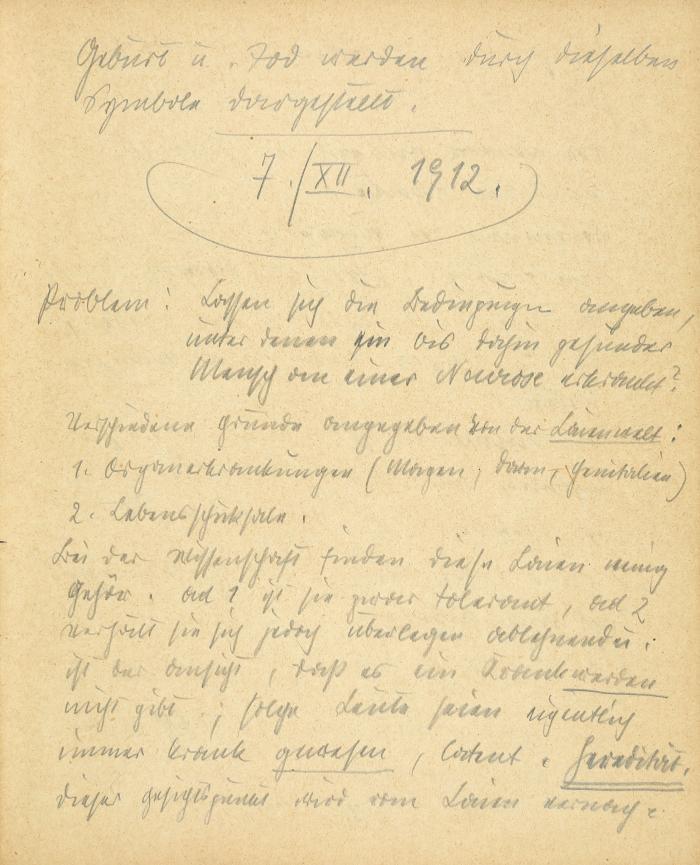 Geburt u. Tod werden durch dieselben
Symbole dargestellt.
7./XII. 1912.
Problem: Lassen sich die Bedingungen angeben,
unter denen ein bis dahin gesunder
Mensch an einer Neurose erkrankt?
Verschiedene Gründe angegeben von der Laienwelt:
1. Organerkrankungen (Magen, Darm, Genitalien)
2. Lebensschicksale.
Bei der Wissenschaft finden diese Laien wenig
Gehör. ad 1 ist sie zwar tolerant, ad 2
verhält sie sich jedoch überlegen ablehnend:
ist der Ansicht, daß es ein Krankwerden
nicht gibt; solche Leute seien eigentlich
immer krank gewesen, latent. Heredität.
Dieser Gesichtspunkt wird vom Laien